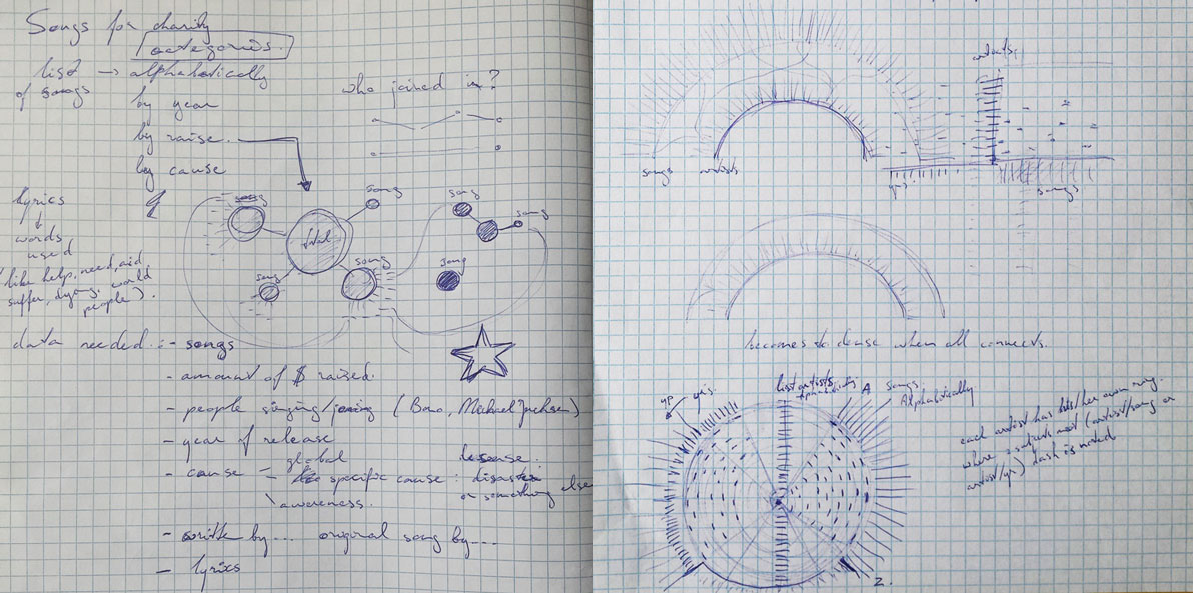 Songs for charity
categories.
list → alphabetically
of songs
by year
by raise.
by cause
who joined in?
lyrics
words
used
(like help, need, aid,
suffer, dying, world
people).
song
song
total
song
song
song
song
song
data needed :- songs
- amount of $ raised.
- people singing/joining (Bono, Michael Jackson)
- year of release
- cause - global
- specific cause : disaster
disease.
or something else
\ awareness.
- written by... original song by...
- lyrics
songs
artists
artists
songs
becomes to dense when all connects.
list artists
Alphabetically
A
songs
Alphabetically
each artist has his/her own ring.
where 2 subjects meet (artist/song or
artist/yr) dash is noted
2.